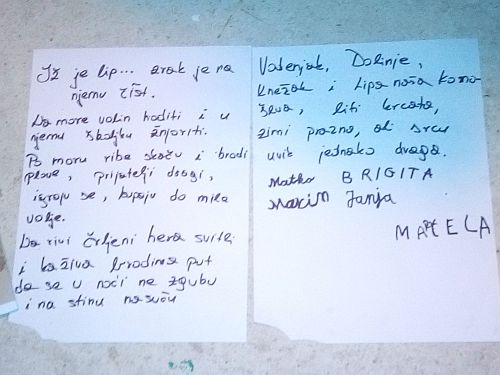 Iž je lip... zrak je na
njemu čist.
Da more volin hoditi i u
njemu školjku žnjoriti.
Po moru ribe skaču i brodi
plove, prijatelji dragi,
igraju se, kupaju do mile
volje.
Na rivi črljeni hera sviti
i kaživa brodima put
da se u noći ne zgubu
i na stinu nasuču
Vošenjak, Dolinje,
Knežak i Lipa naša komo-
štva, liti krcata,
zimi prazno, ali srcu
uvik jednako draga.
Matko BRIGITA
Maxim Janja
MATELA